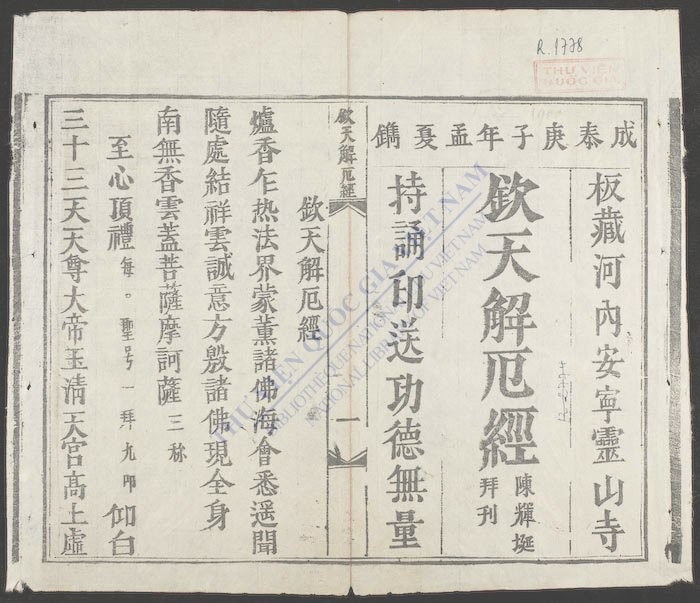 R.1778
THƯ VIỆN
QUỐC GIA
成泰庚子年孟夏鐫
板藏河內安寧靈山寺
欽天解厄經
陳輝𡊰
拜刊
持誦印送功德無量
欽天解厄經
一
欽天解厄經
爐香乍热法界蒙薰諸佛海會悉遥聞
隨處結祥雲誠意方殷諸佛現全身
南無香雲蓋菩薩摩訶薩 三称
至心頂禮 每〇聖号一拜九叩 仰白
三十三天天尊大帝玉清天宮高上虛
THƯ VIỆN QUỐC GIA VIỆT NAM
BIBLIOTHÈQUE NATIONALE DU VIETNAM
NATIONAL LIBRARY OF VIETNAM